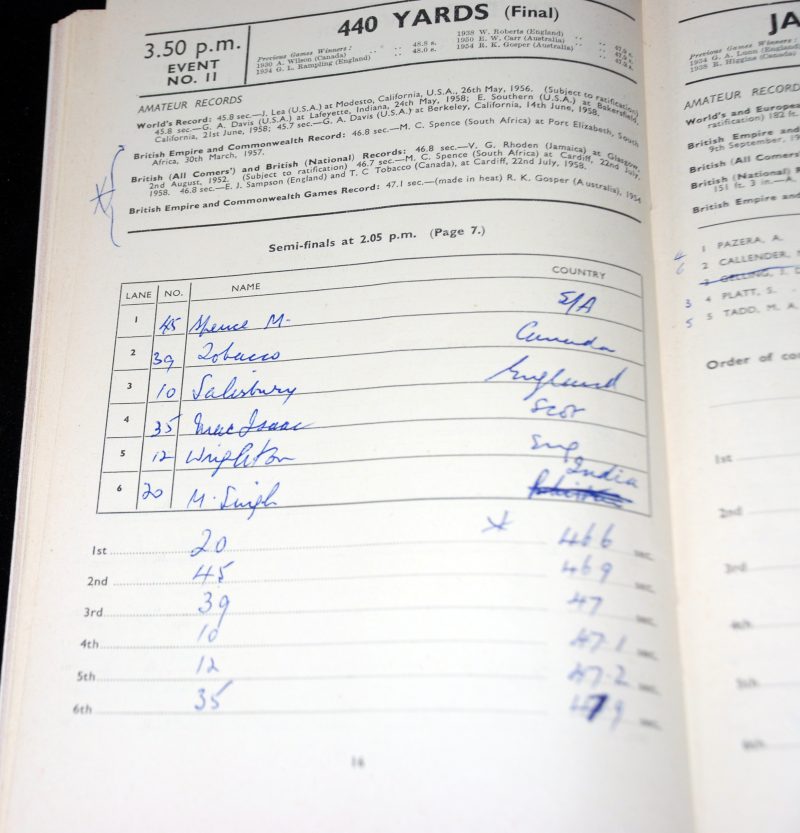 3.50 p.m.
EVENT
NO. 11
440 YARDS (Final)
Previous Games Winners:
1930 A. Wilson (Canada) 48.8 s.
1934 G. L. Rampling (England) 48.0 s.
1938 W. Roberts (England) 47.9 s.
1950 E. W. Carr (Australia) 47.9 s.
1954 R. K. Gosper (Australia) 47.2 s.
AMATEUR RECORDS
World's Record: 45.8 sec.—J. Lea (U.S.A.) at Modesto, California, U.S.A., 26th May, 1956. (Subject to ratification)
45.8 sec.—G. A. Davis (U.S.A.) at Lafeyette, Indiana, 24th May, 1958; E. Southern (U.S.A.) at Bakersfield,
California, 21st June, 1958; 45.7 sec.—G. A. Davis (U.S.A.) at Berkeley, California, 14th June, 1958.
British Empire and Commonwealth Record: 46.8 sec.—M. C. Spence (South Africa) at Port Elizabeth, South
Africa, 30th March, 1957.
British (All Comers') and British (National) Records: 46.8 sec.—V. G. Rhoden (Jamaica) at Glasgow
2nd August, 1952. (Subject to ratification) 46.7 sec.—M. C. Spence (South Africa) at Cardiff, 22nd July,
1958. 46.8 sec.—E. J. Sampson (England) and T. C Tobacco (Canada), at Cardiff, 22nd July, 1958.
British Empire and Commonwealth Games Record: 47.1 sec.—(made in heat) R. K. Gosper (Australia), 1954
Semi-finals at 2.05 p.m. (Page 7.)
LANE NO. NAME COUNTRY
1 45 Spence M. S/A
2 39 Tobacco Canada
3 10 Salisbury England
4 35 MacIsaac Scot
5 12 Wrighton Eng
6 20 M. Singh India
1st 20 * 46 6 sec.
2nd 45 46 9 sec.
3rd 39 47 sec.
4th 10 47.1 sec.
5th 12 47.2 sec.
6th 35 47 9 sec.
16
JA
Previous Games Winners:
1934 G. A. Lunn (England)
1938 R. Higgins (Canada)
AMATEUR RECORDS
World's and Europea
ratification) 182 ft.
British Empire and
9th September, 19
British (All Comers'
British (National) R
151 ft. 3 in.—A.
British Empire and
4 1 PAZERA, A.
6 2 CALLENDER,
3 GELLING, J. D
3 4 PLATT, S.
5 5 TADD, M. A.
Order of co
1st
2nd
3rd
4th
5th
6th